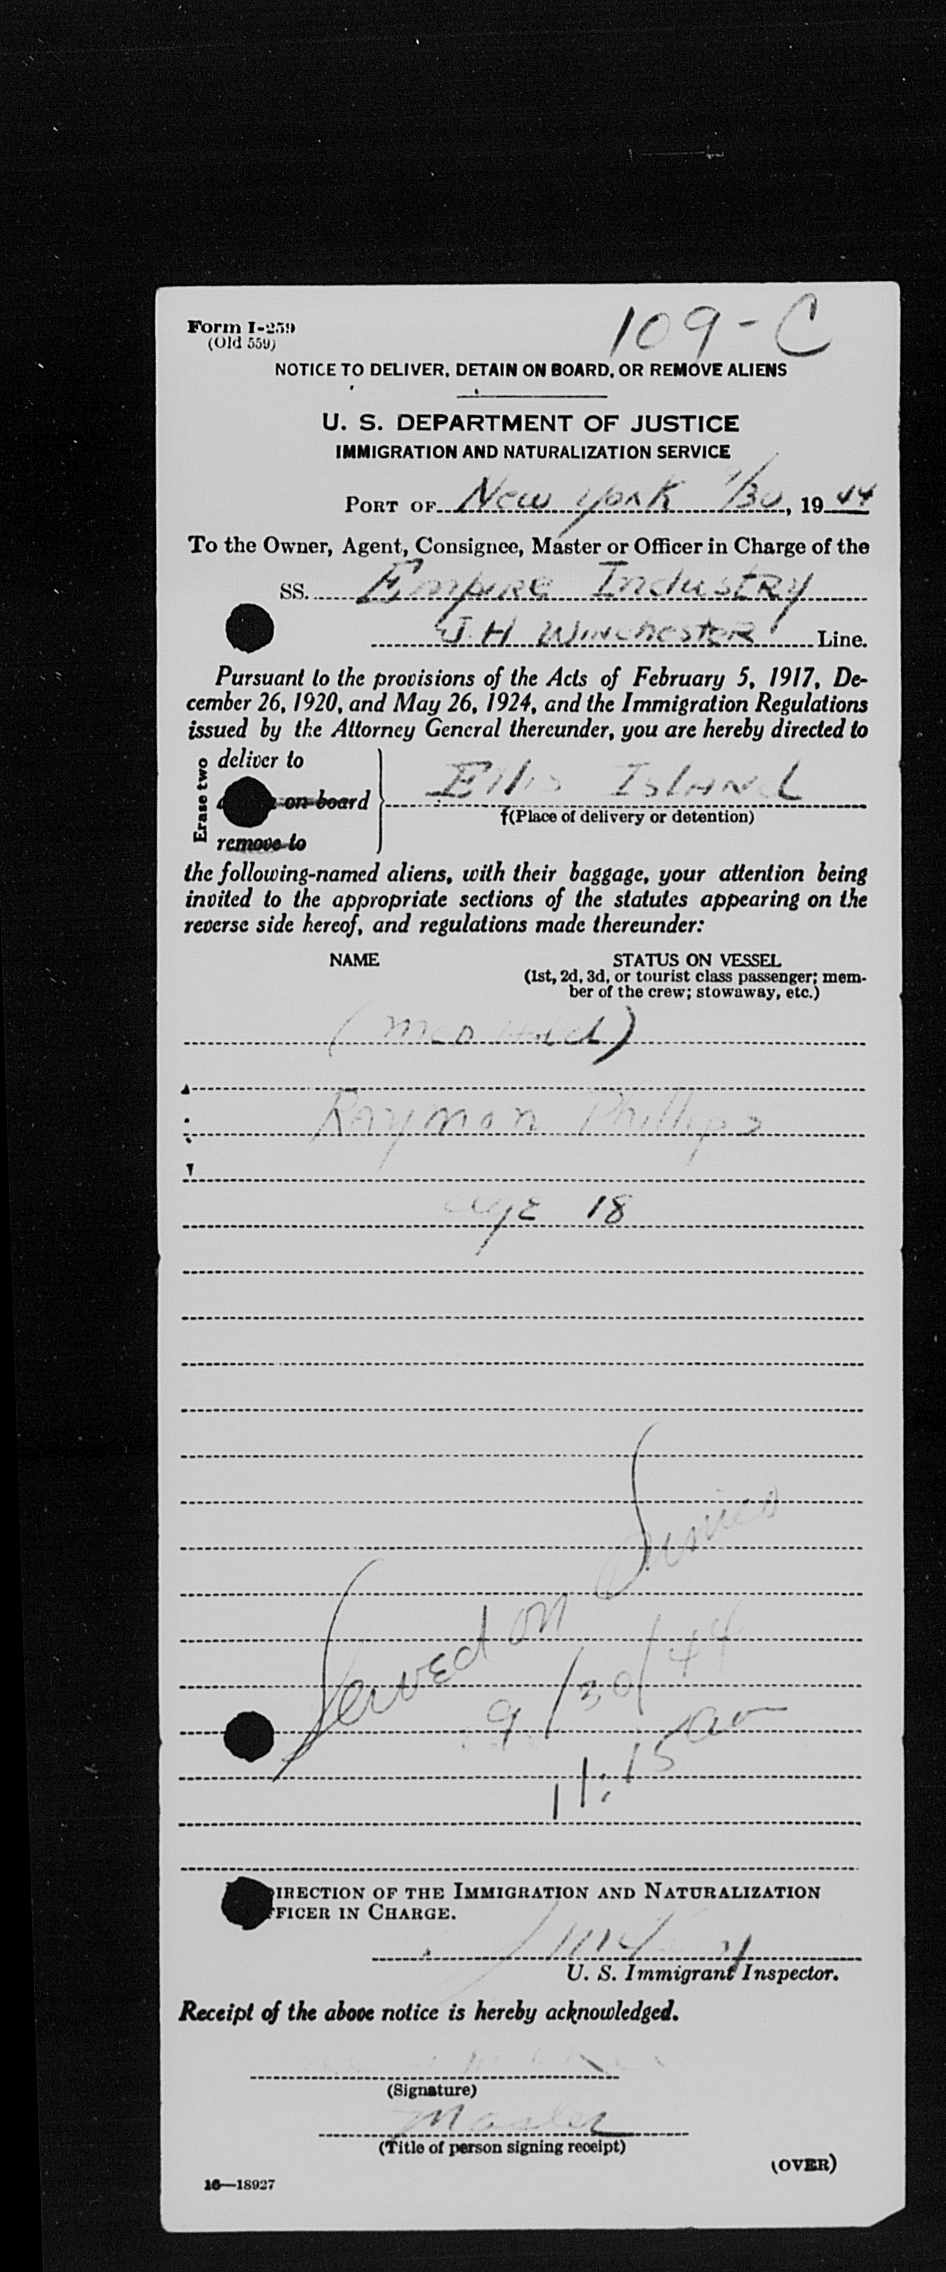 109-C
Form I-259
(Old 559)
NOTICE TO DELIVER, DETAIN ON BOARD, OR REMOVE ALIENS
U. S. DEPARTMENT OF JUSTICE
IMMIGRATION AND NATURALIZATION SERVICE
PORT OF New York 9/30, 19 44
To the Owner, Agent, Consignee, Master or Officer in Charge of the
SS. Empire Industry
J. H Winchester Line.
Pursuant to the provisions of the Acts of February 5, 1917, De-
cember 26, 1920, and May 26, 1924, and the Immigration Regulations
issued by the Attorney General thereunder, you are hereby directed to
Erase two
deliver to
on board
remove to
Ellis Island
(Place of delivery or detention)
the following-named aliens, with their baggage, your attention being
invited to the appropriate sections of the statutes appearing on the
reverse side hereof, and regulations made thereunder:
NAME STATUS ON VESSEL
(1st, 2d, 3d, or tourist class passenger; mem-
ber of the crew; stowaway, etc.)
Raymon Phillips
age 18
Served on
9/30/44
11:15 am
IRECTION OF THE IMMIGRATION AND NATURALIZATION
FFICER IN CHARGE.
U. S. Immigrant Inspector.
Receipt of the above notice is hereby acknowledged.
(Signature)
Master
(Title of person signing receipt)
(OVER)
16—18927